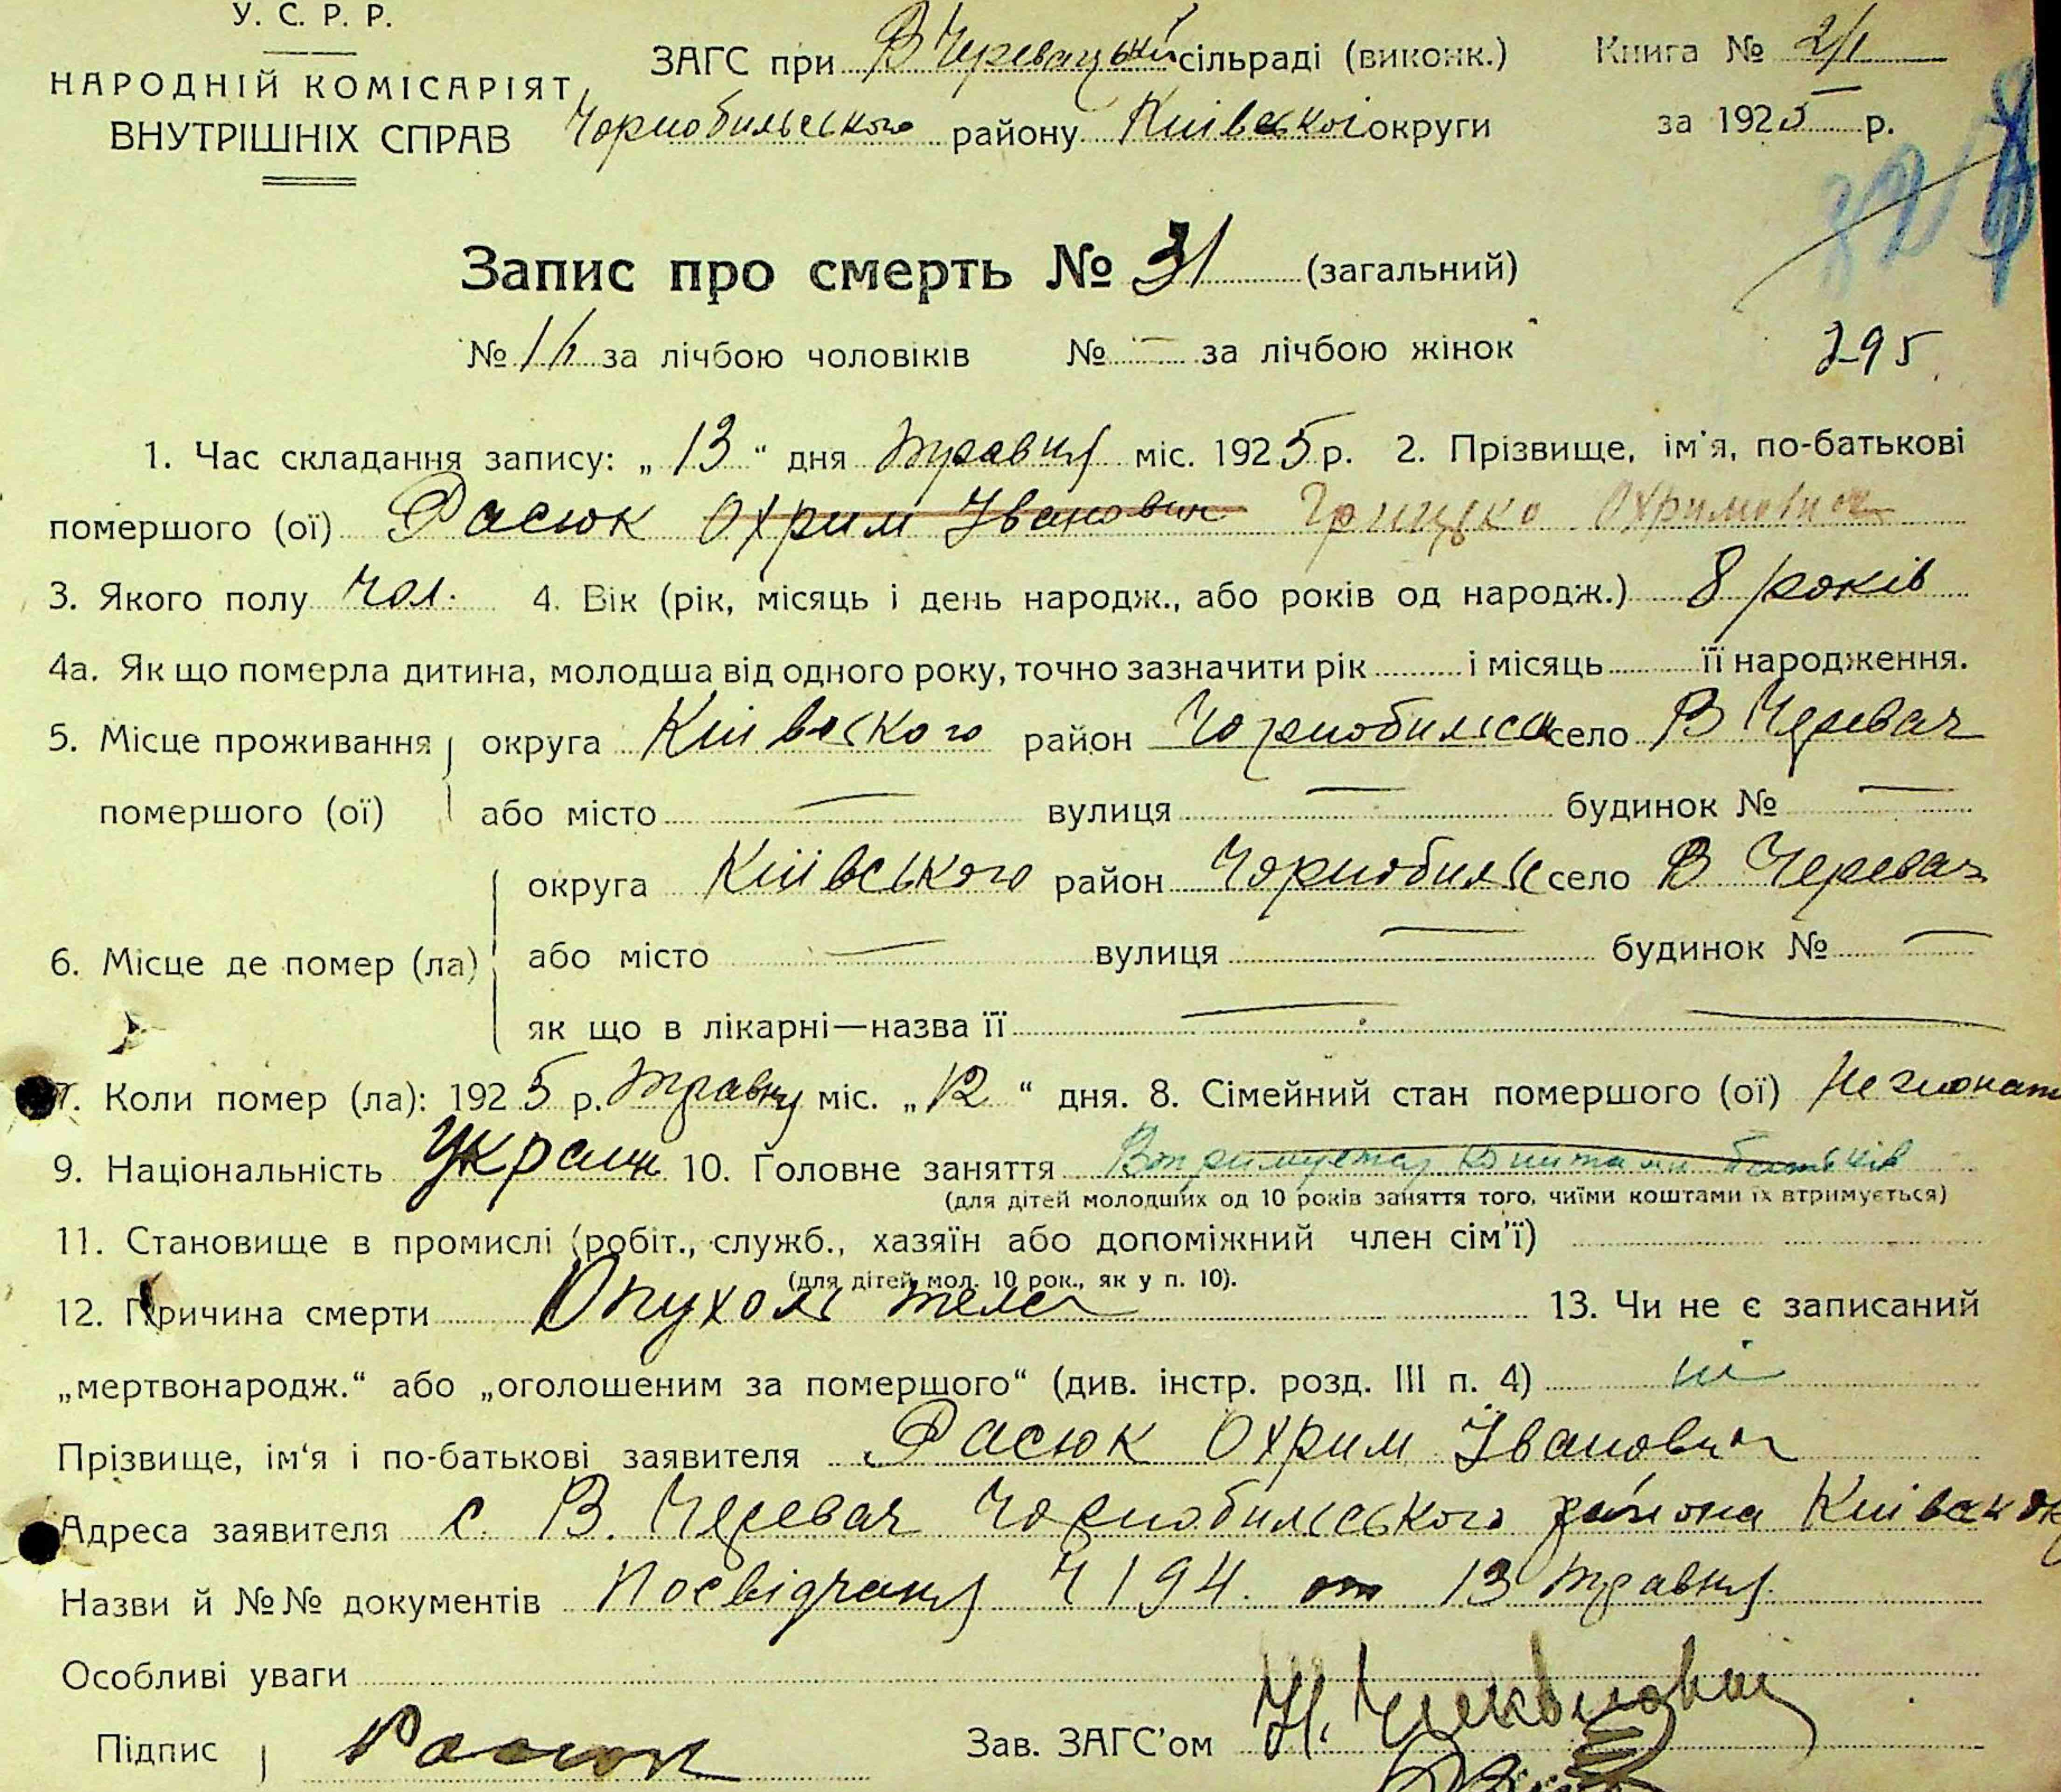 У. С. Р. Р.
НАРОДНІЙ КОМІСАРІЯТ
ВНУТРІШНІХ СПРАВ
ЗАГС при В Черевацькій сільраді (виконк.)
Чорнобильського району Київської округи
Книга № 2/1
за 1925 р.
Запис про смерть № 31 (загальний)
№ за лічбою чоловіків № — за лічбою жінок
295
1. Час складання запису: „ 13 “ дня травня міс. 1925 р. 2. Прізвище, ім'я, по-батькові
помершого (ої) Расюк Охрим Іванович Грицько Охримович
3. Якого полу чол. 4. Вік (рік, місяць і день народж., або років од народж.) 8 років
4а. Як що померла дитина, молодша від одного року, точно зазначити рік і місяць її народження.
5. Місце проживання округа Київського район Чорнобильськ село В Черевач
помершого (ої) або місто — вулиця — будинок № —
округа Київського район Чорнобильс село В Черевач
6. Місце де помер (ла) або місто — вулиця — будинок № —
як що в лікарні—назва її — —
7. Коли помер (ла): 1925 р. травня міс. „ 12 “ дня. 8. Сімейний стан помершого (ої)
9. Національність Україн 10. Головне заняття коштами батьків
(для дітей молодших од 10 років заняття того, чиїми коштами їх втримується)
11. Становище в промислі (робіт., служб., хазяїн або допоміжний член сім'ї)
(для дітей мол. 10 рок., як у п. 10).
12. Причина смерти Опухоль тела 13. Чи не є записаний
„мертвонародж.“ або „оголошеним за помершого“ (див. інстр. розд. III п. 4) ні
Прізвище, ім'я і по-батькові заявителя Расюк Охрим Іванович
Адреса заявителя с. В. Черевач Чорнобильського района Київськ
Назви й №№ документів Посвідчання Ч 194. от 13 травня
Особливі уваги
Підпис Расюк Зав. ЗАГС'ом